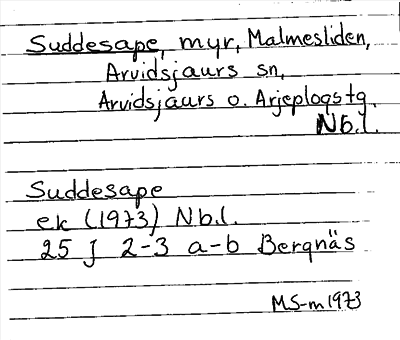 Suddesape, myr, Malmesliden,
Arvidsjaurs sn,
Arvidsjaurs o. Arjeplogs tg.
Nb.l.
Suddesape
ek (1973) Nb.l.
25 J 2-3 a-b Bergnäs
MS-m 1973